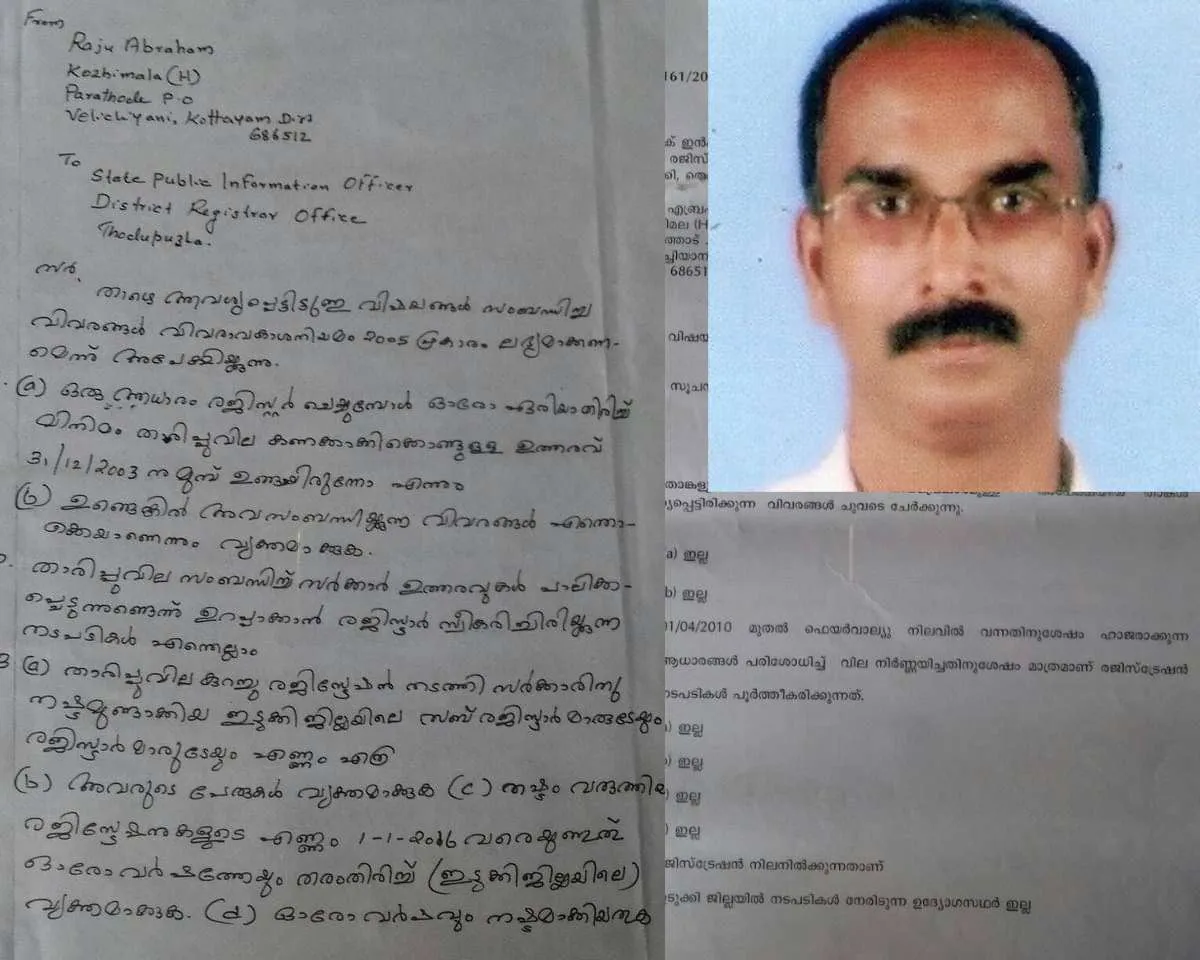 From
Raju Abraham
Kozhimala (H)
Parathode P.O
Velichiyani, Kottayam Dist
686512
To
State Public Information Officer
District Registrar Office
Thodupuzha.
സർ,
താഴെ ആവശ്യപ്പെട്ടിട്ടുള്ള വിഷയങ്ങൾ സംബന്ധിച്ച
വിവരങ്ങൾ വിവരാവകാശനിയമം 2005 പ്രകാരം ലഭ്യമാക്കണ-
മെന്ന് അപേക്ഷിയ്ക്കുന്നു.
(a) ഒരു ആധാരം രജിസ്റ്റർ ചെയ്യുമ്പോൾ ഓരോ ഏരിയാതിരിച്ച്
മിനിമം താരിപ്പുവില കണക്കാക്കിക്കൊണ്ടുള്ള ഉത്തരവ്
31/12/2003 നു മുമ്പ് ഉണ്ടായിരുന്നോ എന്നും
(b) ഉണ്ടെങ്കിൽ അവസംബന്ധിയ്ക്കുന്ന വിവരങ്ങൾ എന്തൊ-
ക്കെയാണെന്നും വ്യക്തമാക്കുക.
താരിപ്പുവില സംബന്ധിച്ച് സർക്കാർ ഉത്തരവുകൾ പാലിക്ക-
പ്പെടുന്നുണ്ടെന്ന് ഉറപ്പാക്കാൻ രജിസ്ട്രാർ സ്വീകരിച്ചിരിയ്ക്കുന്ന
നടപടികൾ എന്തെല്ലാം
3 (a) താരിപ്പുവില കുറച്ചു രജിസ്ട്രേഷൻ നടത്തി സർക്കാരിനു
നഷ്ടമുണ്ടാക്കിയ ഇടുക്കി ജില്ലയിലെ സബ് രജിസ്ട്രാർമാരുടേയും
രജിസ്ട്രാർമാരുടേയും എണ്ണം എത്ര
(b) അവരുടെ പേരുകൾ വ്യക്തമാക്കുക (c) നഷ്ടം വരുത്തിയ
രജിസ്ട്രേഷനുകളുടെ എണ്ണം 1-1-2016 വരെയുണ്ടത്
ഓരോ വർഷത്തേയും തരംതിരിച്ച് (ഇടുക്കിജില്ലയിലെ)
വ്യക്തമാക്കുക. (d) ഓരോ വർഷവും നഷ്ടമാക്കിയതുക
161/20
ക് ഇൻ
രജിസ്
കി, തൊ
എബ്ര
മല (H
ത്തോട്
ച്ചിയാന
68651
വിഷയ
സൂചന
താങ്കളു
പ്പെട്ടിരിക്കുന്ന വിവരങ്ങൾ ചുവടെ ചേർക്കുന്നു.
a) ഇല്ല
b) ഇല്ല
01/04/2010 മുതൽ ഫെയർവാല്യു നിലവിൽ വന്നതിനുശേഷം ഹാജരാക്കുന്ന
ആധാരങ്ങൾ പരിശോധിച്ച് വില നിർണ്ണയിച്ചതിനുശേഷം മാത്രമാണ് രജിസ്ട്രേഷൻ
നടപടികൾ പൂർത്തീകരിക്കുന്നത്.
) ഇല്ല
) ഇല്ല
) ഇല്ല
) ഇല്ല
രജിസ്ട്രേഷൻ നിലനിൽക്കുന്നതാണ്
ഇടുക്കി ജില്ലയിൽ നടപടികൾ നേരിടുന്ന ഉദ്യോഗസ്ഥർ ഇല്ല